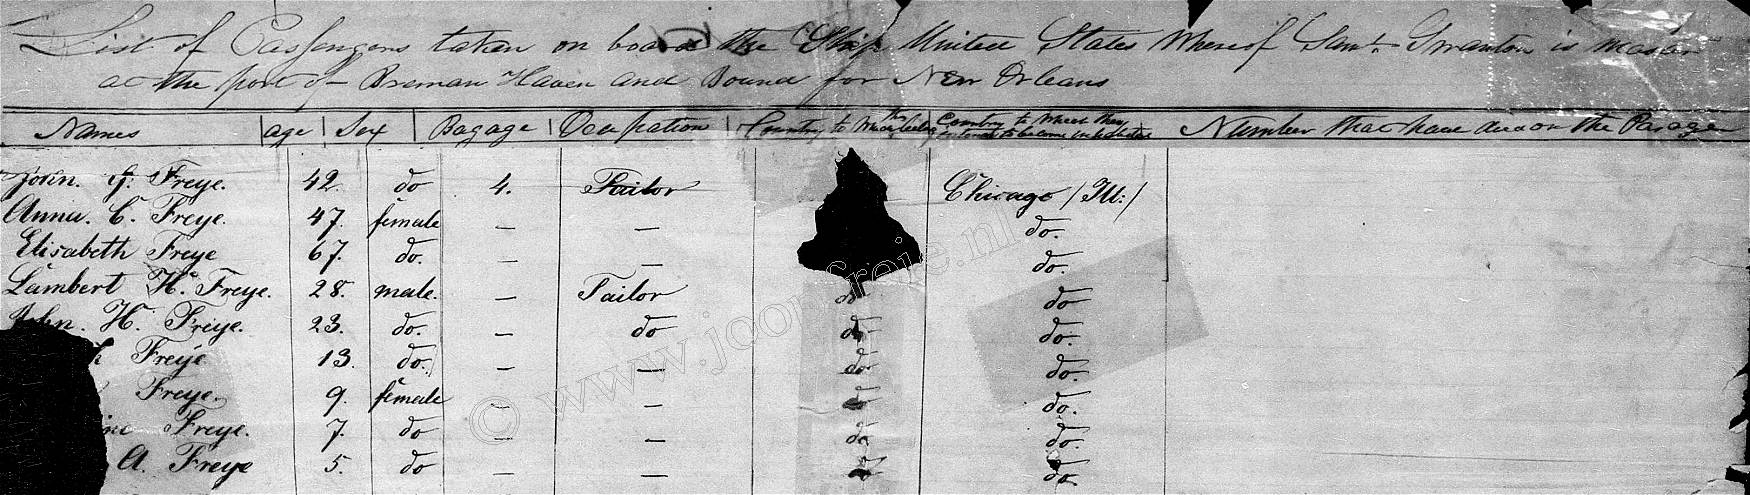 List of Passengers taken on board the Ship United States Whereof Saml. Swanton is master
at the port of Breman Haven and Bound for New Orleans
Names age Sex Bagage Ocupation Country to Which they Country to Which they intend to become inhabitants Number that have died on the Pasage
John. G. Freye. 42 do 4. Tailor Chicago /Ill:/
Anna. C. Freye. 47. female – – do.
Elisabeth Freye 67. do. – – do.
Lambert H. Freye. 28. male. – Tailor do do
John. H. Freye. 23. do. – do do do.
Freye 13. do. – – do do.
Freye. 9. female – – do do.
Freye. 7. do – – do do.
A. Freye 5. do – – do do.
© www.joopfreije.nl